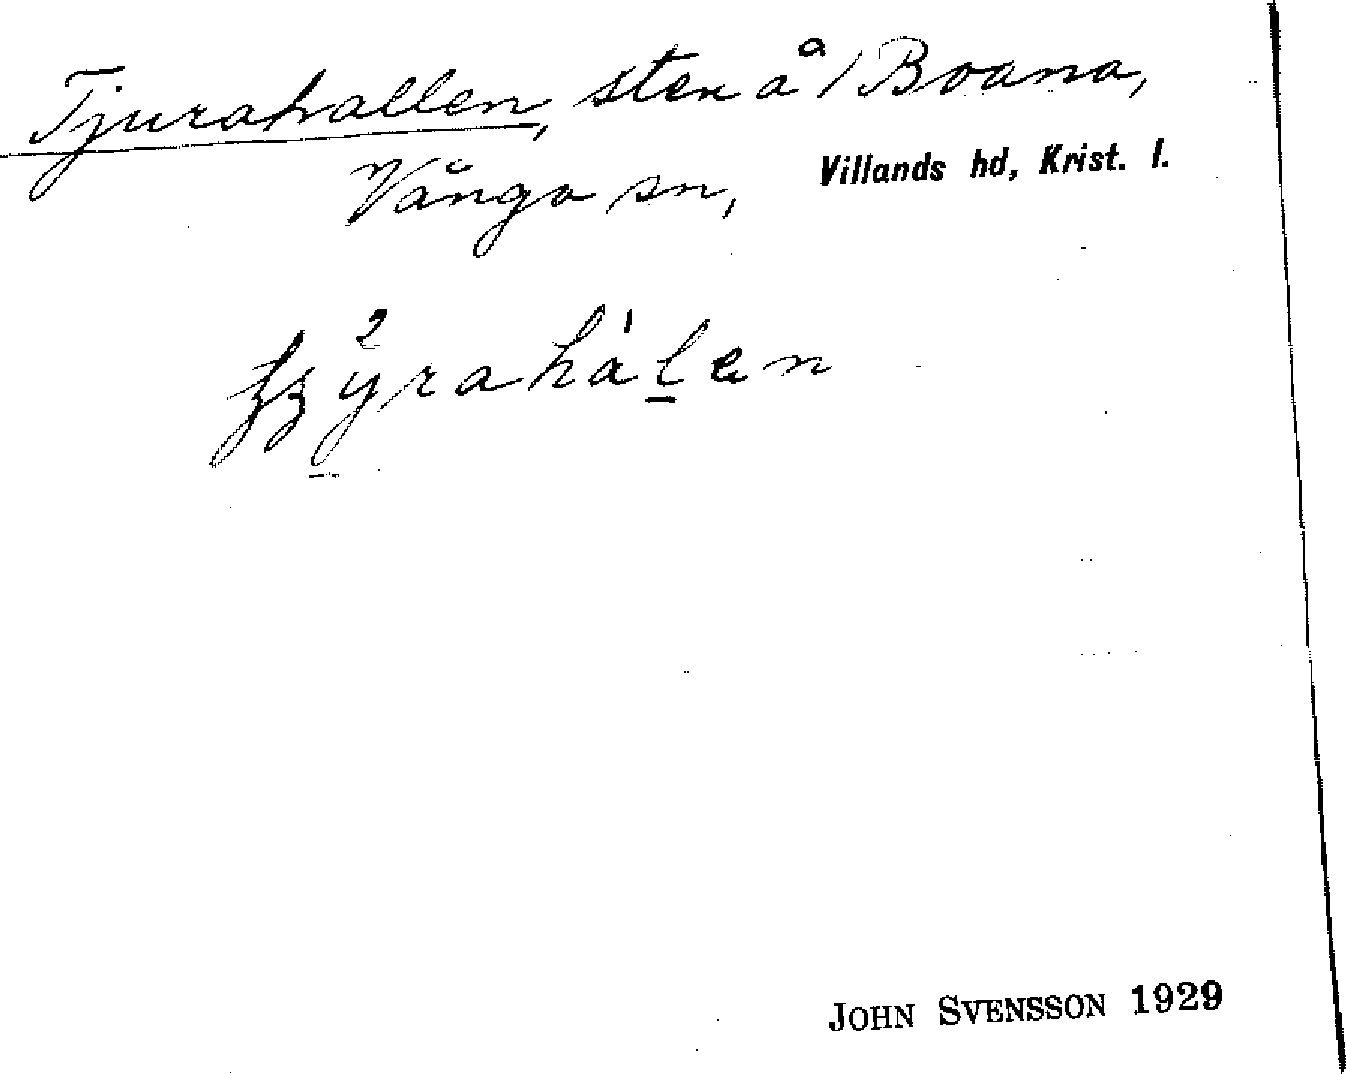 Tjurahallen, sten å / Boana,
Vånga sn, Villands hd, Krist. l.
JOHN SVENSSON 1929